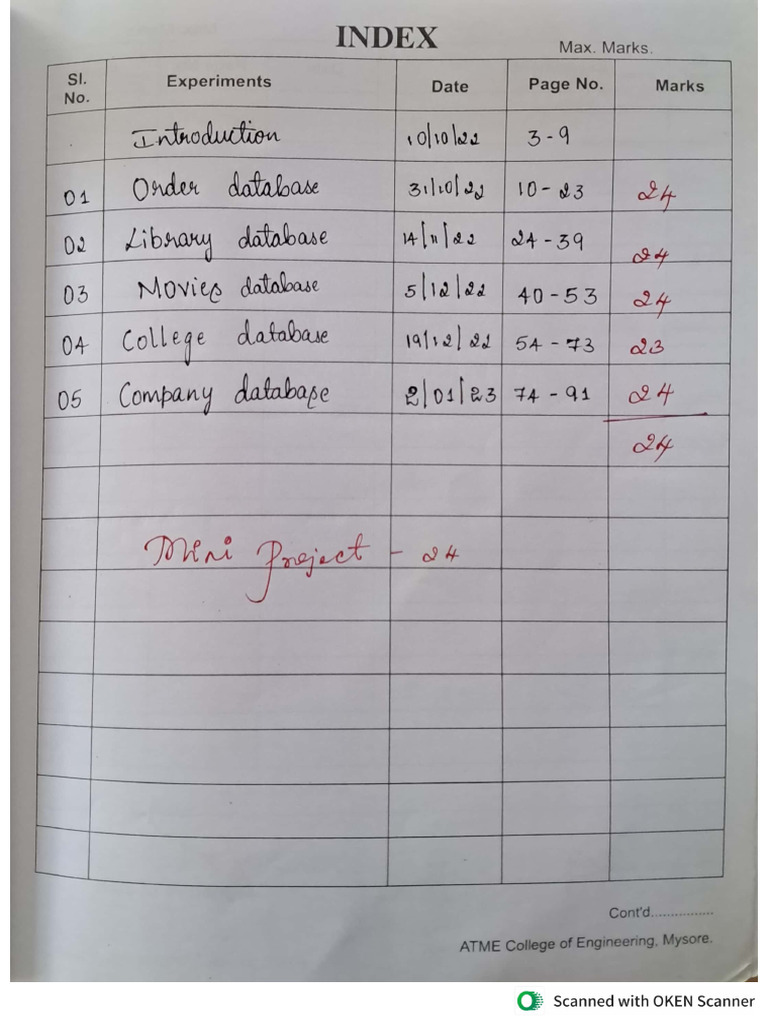 INDEX
Max. Marks.
Sl. No. Experiments Date Page No. Marks
Introduction 10/10/22 3-9
01 Order database 31/10/22 10-23 24
02 Library database 14/11/22 24-39 24
03 Movies database 5/12/22 40-53 24
04 College database 19/12/22 54-73 23
05 Company database 2/01/23 74-91 24
24
Mini Project - 24
Cont'd................
ATME College of Engineering, Mysore.
Scanned with OKEN Scanner